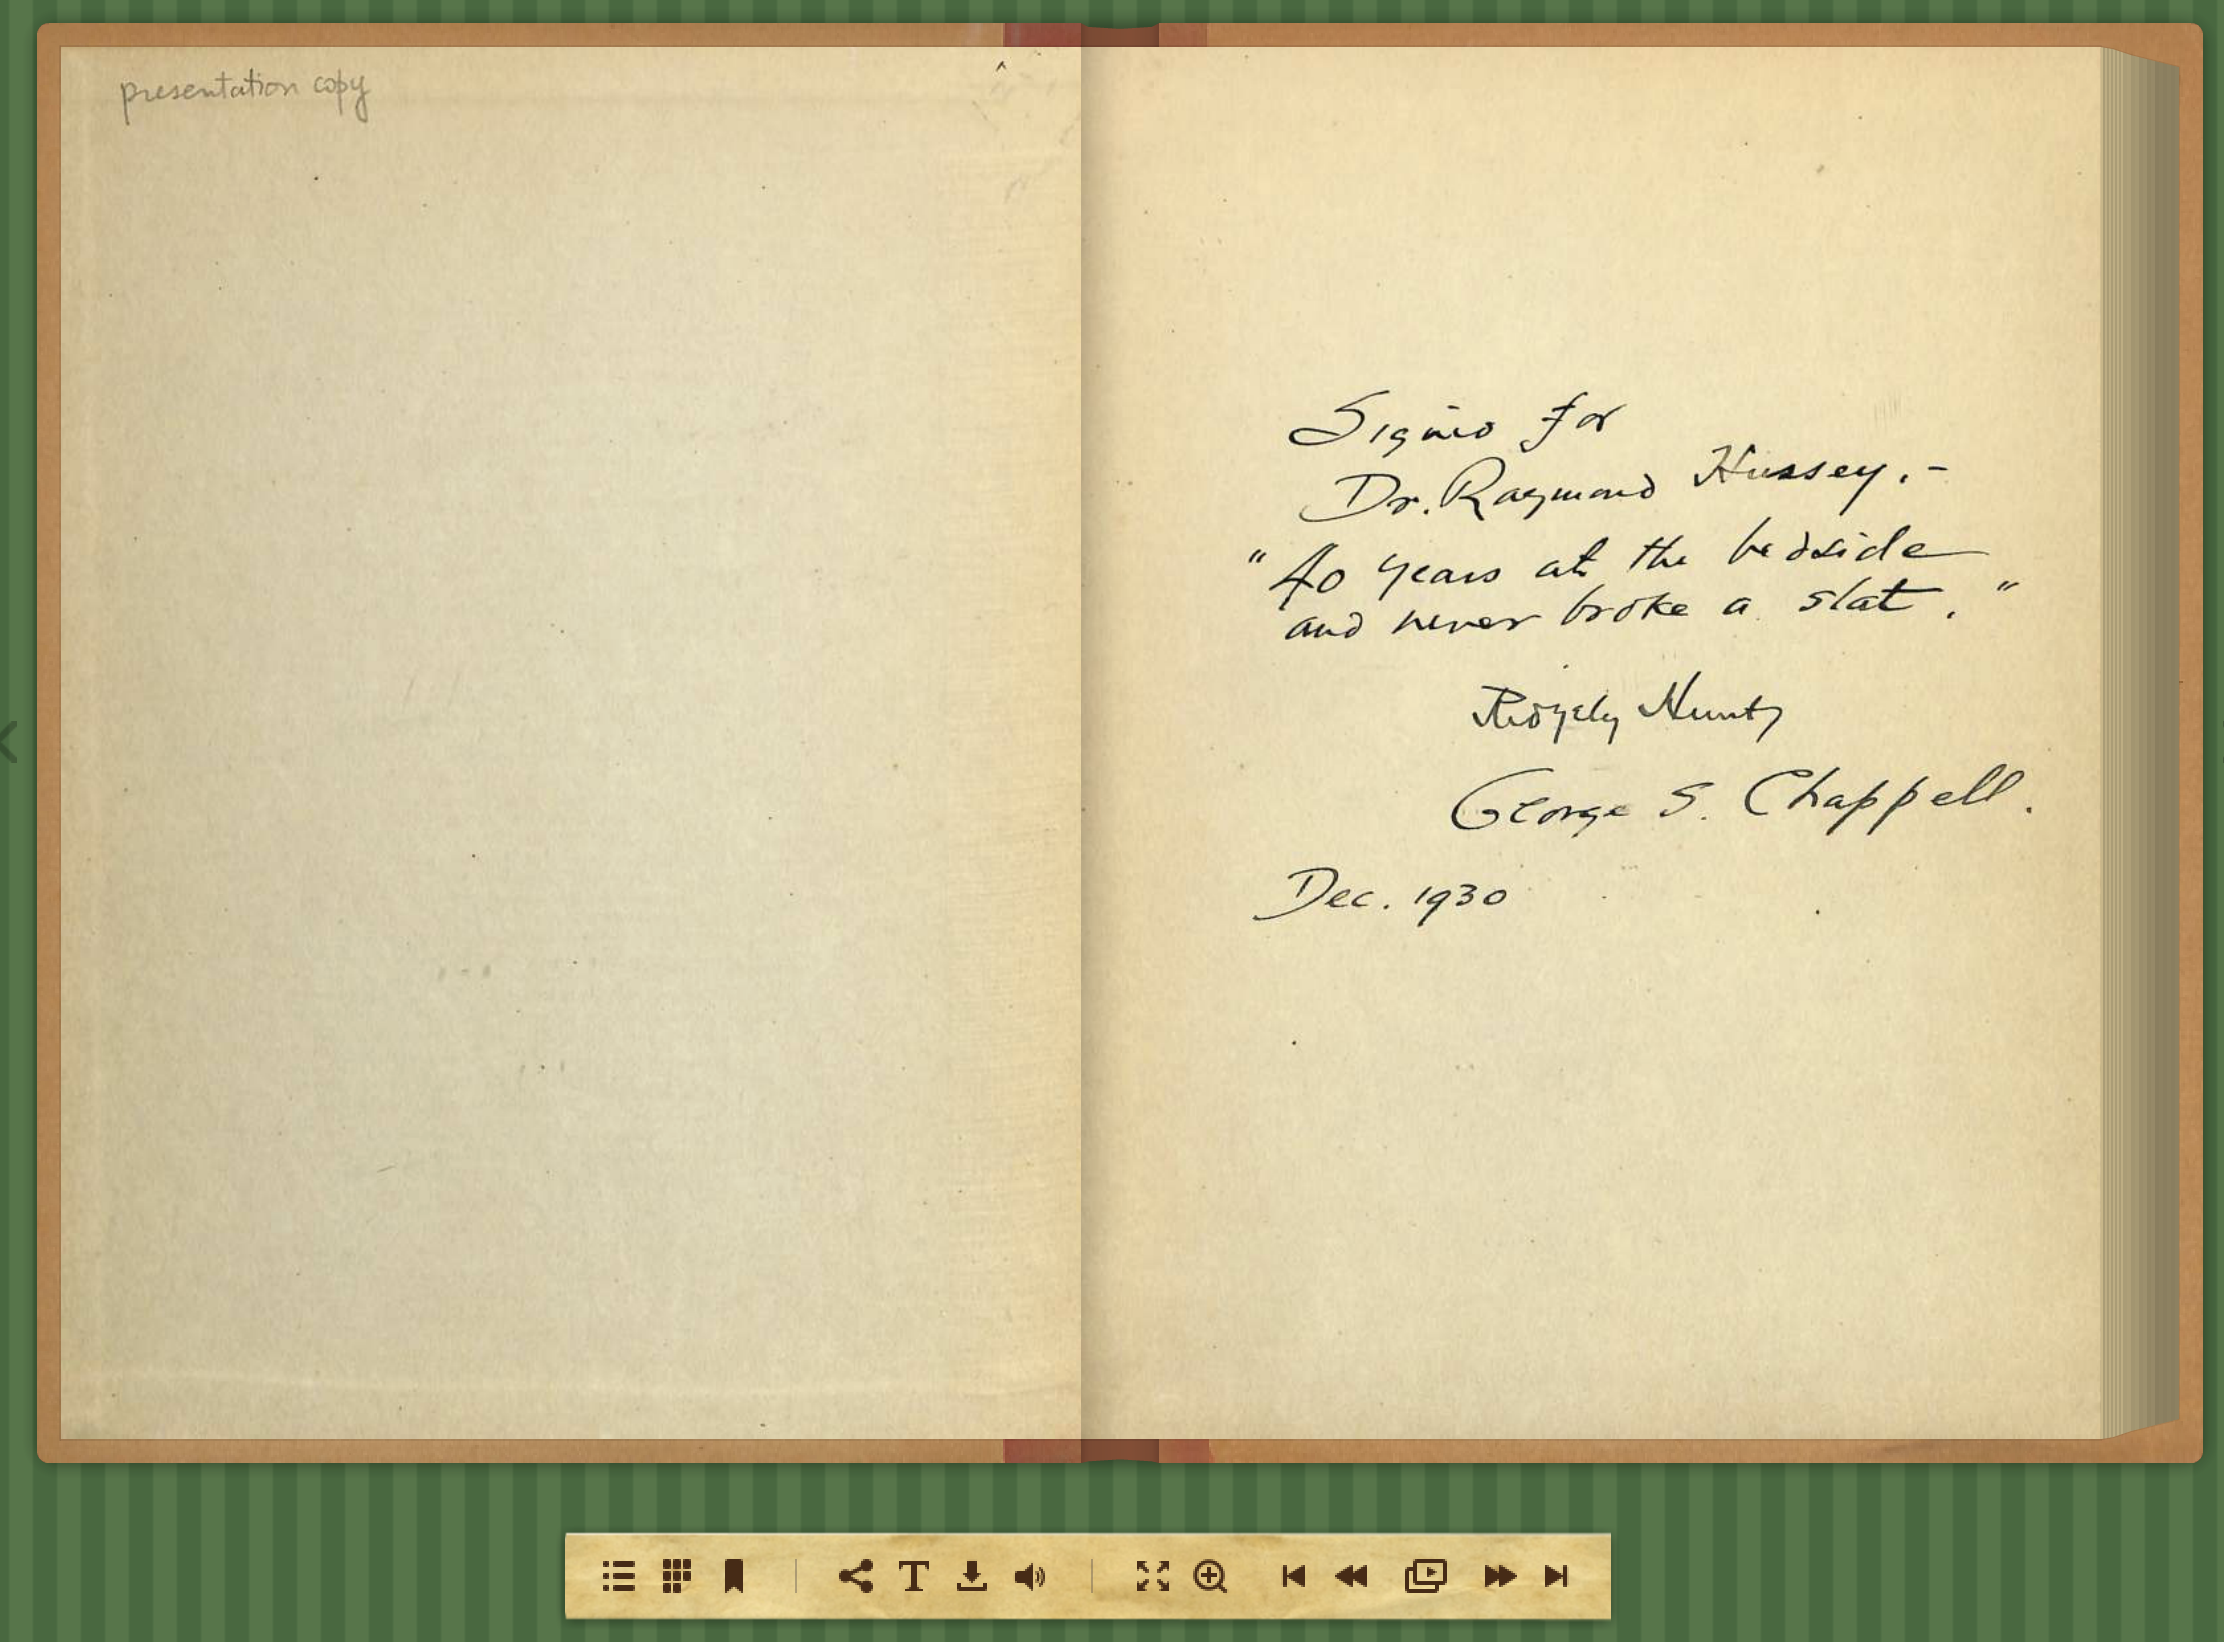 presentation copy
Signed for
Dr. Raymond Hussey. -
"40 years at the bedside
and never broke a slat."
Ridgely Hunt
George S. Chappell.
Dec. 1930